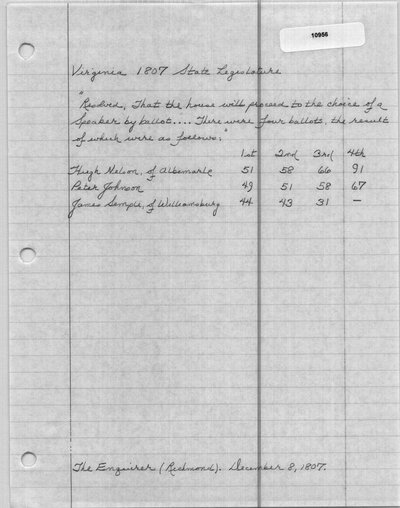 10956
Virginia 1807 State Legislature
"Resolved, That the house will proceed to the choice of a
Speaker by ballot.... There were four ballots, the result
of which were as follows:"
1st 2nd 3rd 4th
Hugh Nelson, of Albemarle 51 58 66 91
Peter Johnson 49 51 58 67
James Semple, of Williamsburg 44 43 31 —
The Enquirer (Richmond). December 8, 1807.